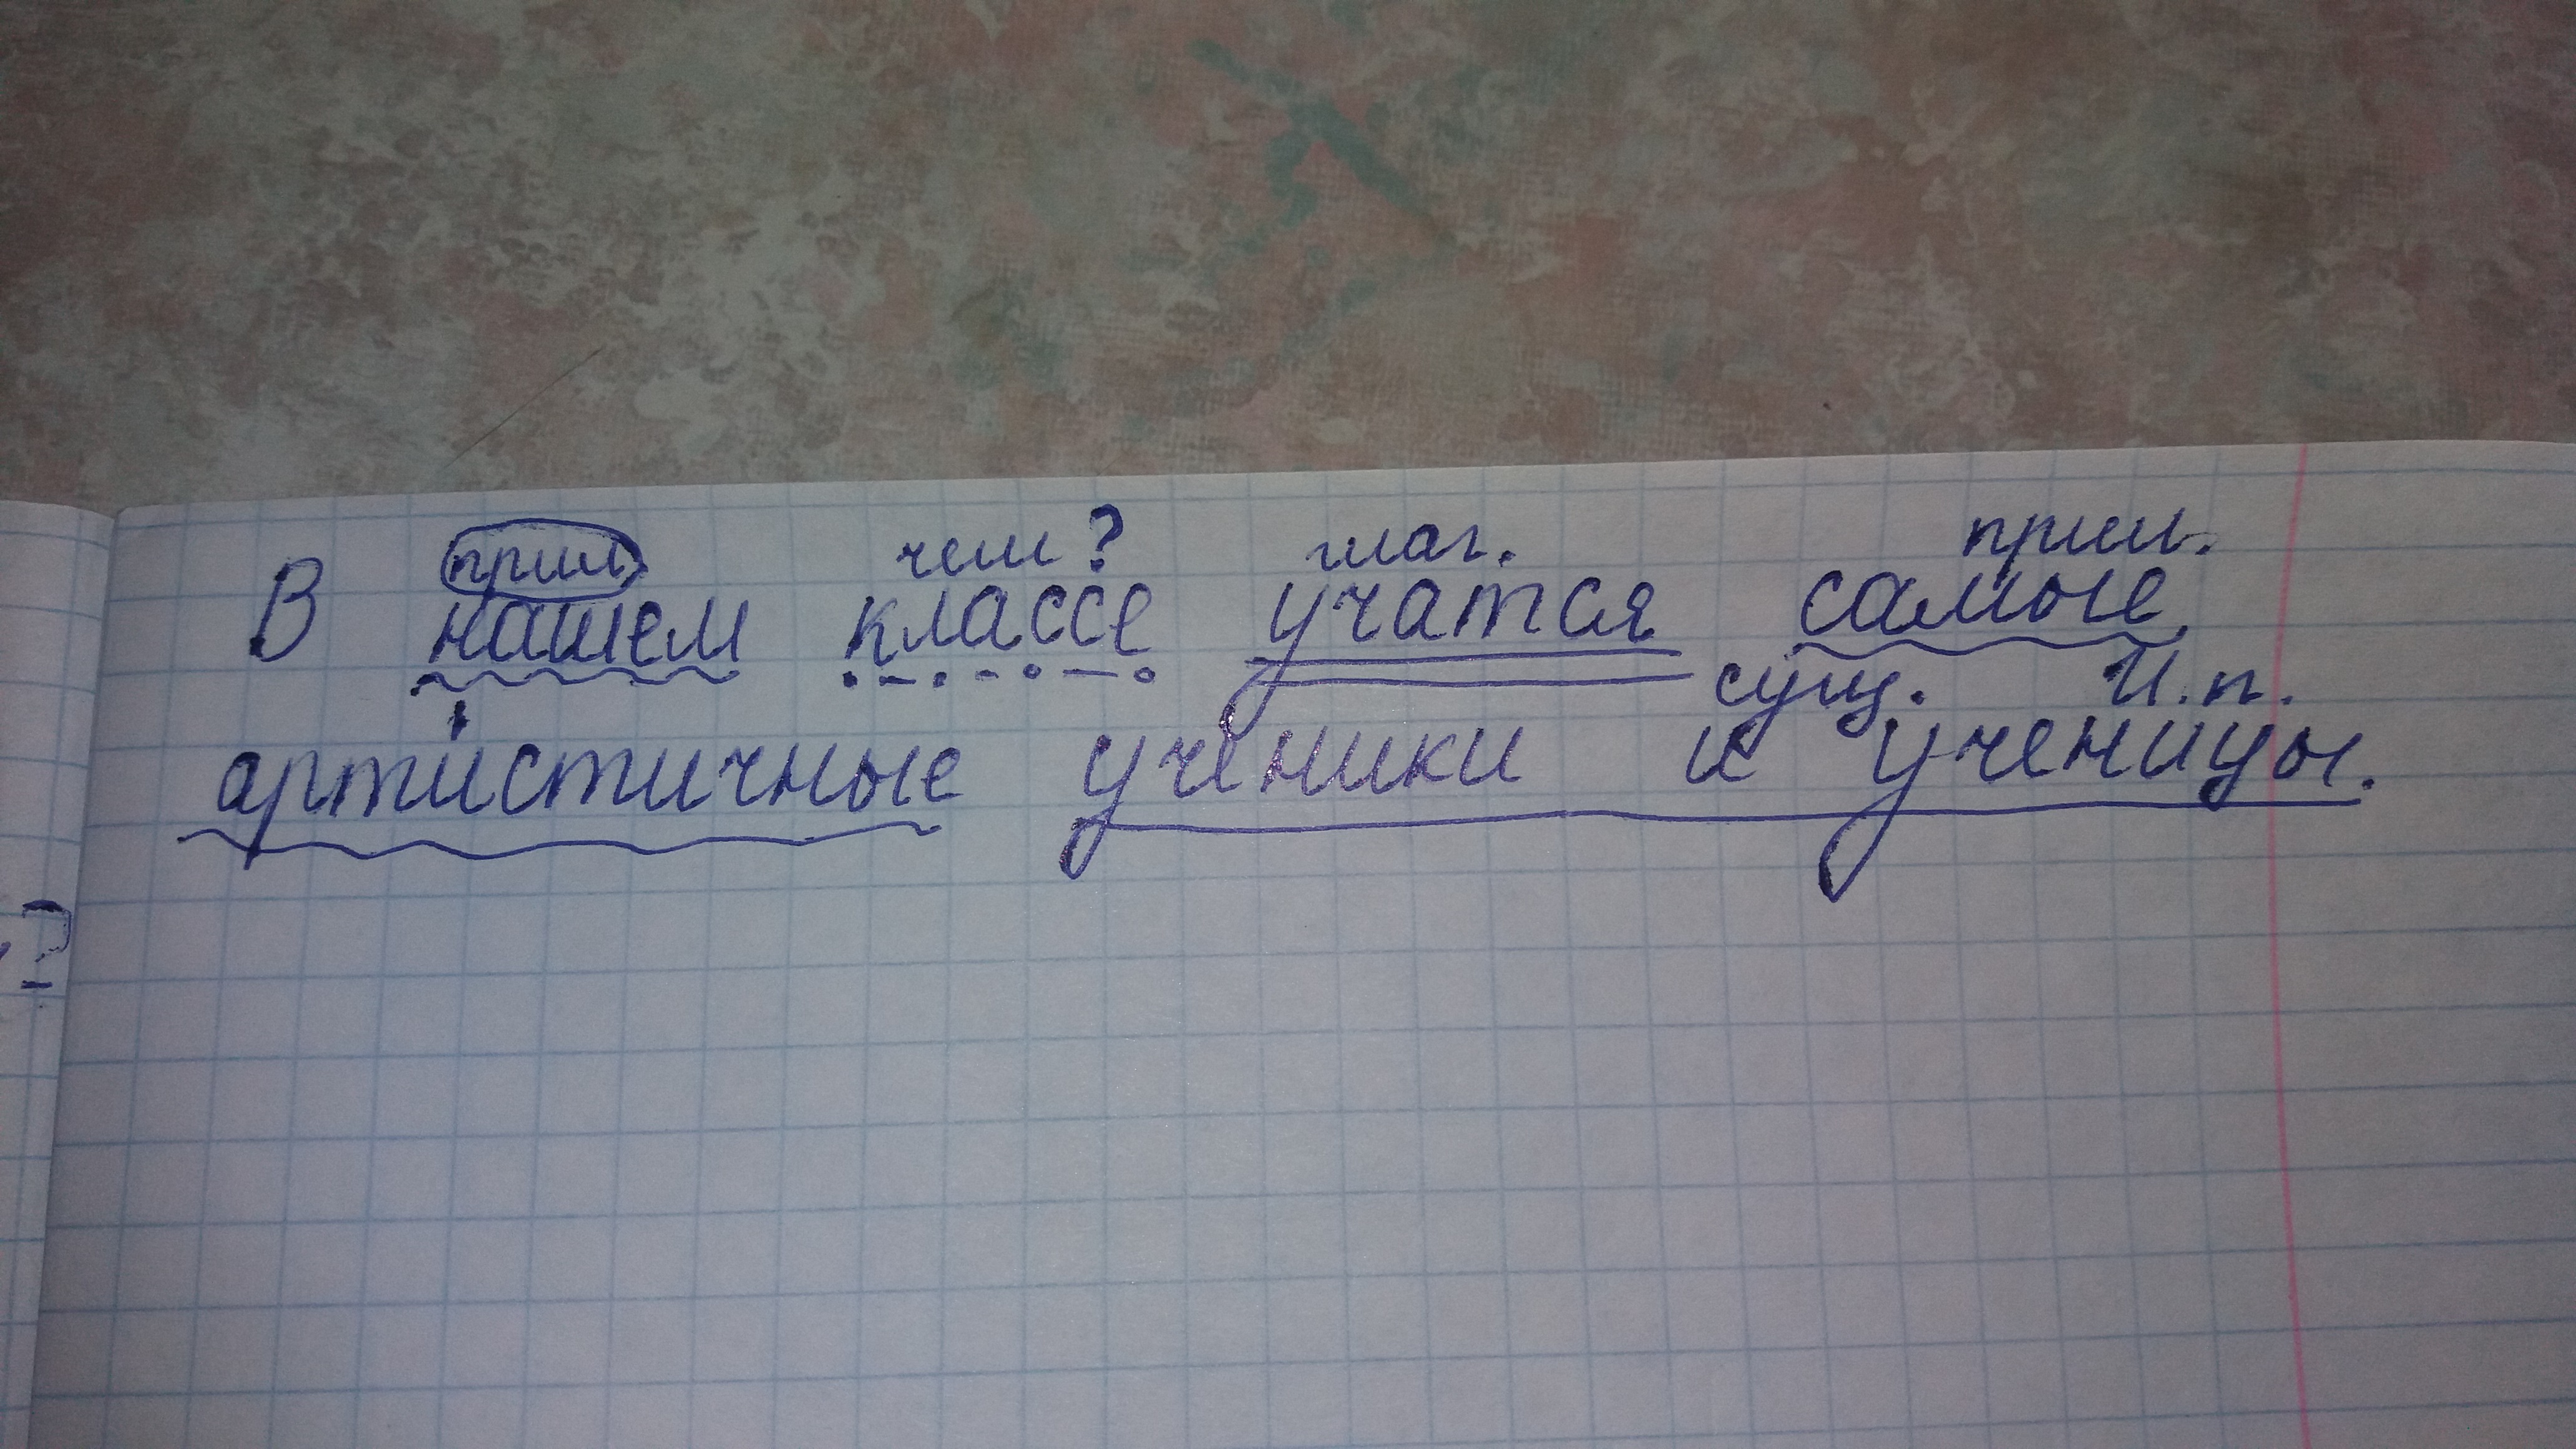 прил. чем? глаг. прил.
В нашем классе учатся самые
сущ. И.п.
артистичные ученики и ученицы.
?